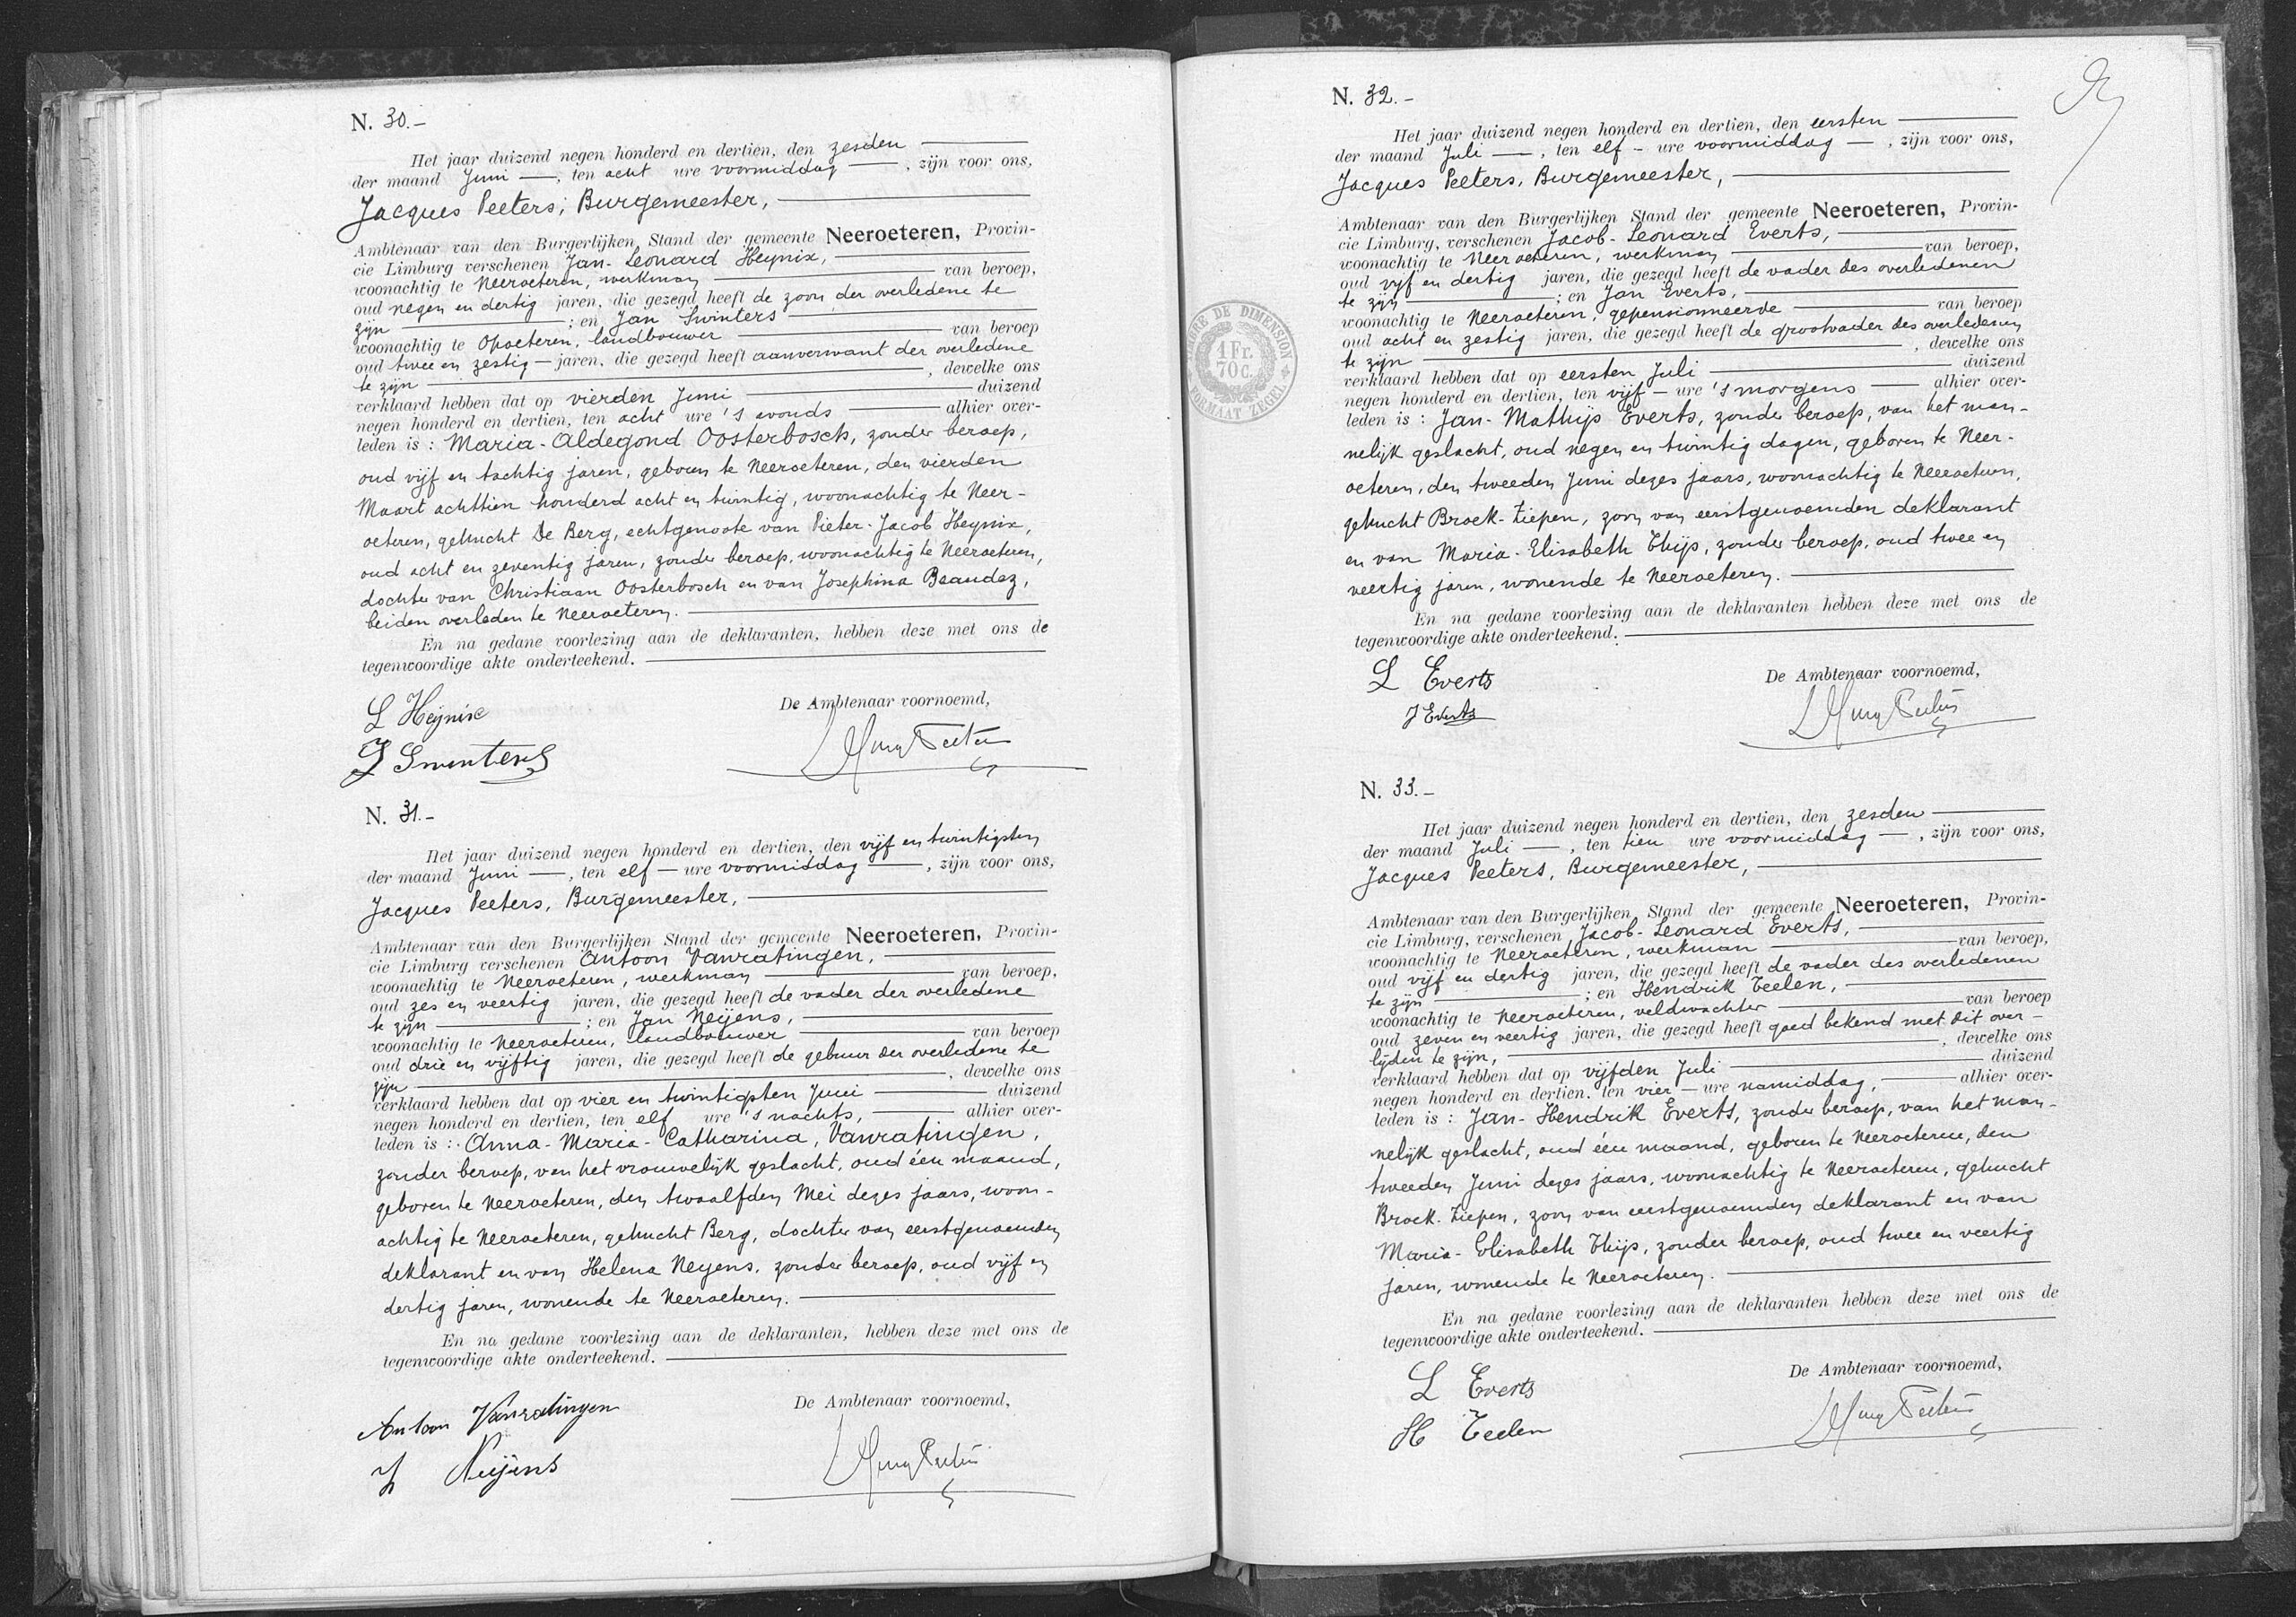 N. 30.-
Het jaar duizend negen honderd en dertien, den zesden
der maand Juni —, ten acht ure voormiddag —, zijn voor ons,
Jacques Peeters, Burgemeester,
Ambtenaar van den Burgerlijken Stand der gemeente Neeroeteren, Provin-
cie Limburg verschenen Jan-Leonard Heynix,
woonachtig te Neeroeteren, werkman van beroep,
oud negen en dertig jaren, die gezegd heeft de zoon der overledene te
zijn ; en Jan Swinters
woonachtig te Opoeteren, landbouwer van beroep
oud twee en zestig — jaren, die gezegd heeft aanverwant der overledene
te zijn , dewelke ons
verklaard hebben dat op vierden Juni duizend
negen honderd en dertien, ten acht ure 's avonds alhier over-
leden is : Maria-Aldegond Oosterbosch, zonder beroep,
oud vijf en tachtig jaren, geboren te Neeroeteren, den vierden
Maart achttien honderd acht en twintig, woonachtig te Neer-
oeteren, gehucht De Berg, echtgenoote van Pieter-Jacob Heynix,
oud acht en zeventig jaren, zonder beroep, woonachtig te Neeroeteren,
dochter van Christiaan Oosterbosch en van Josephina Beaudez,
beiden overleden te Neeroeteren.
En na gedane voorlezing aan de deklaranten, hebben deze met ons de
tegenwoordige akte onderteekend.
De Ambtenaar voornoemd,
L Heynix
J Swinters
N. 31.-
Het jaar duizend negen honderd en dertien, den vijf en twintigsten
der maand Juni —, ten elf — ure voormiddag —, zijn voor ons,
Jacques Peeters, Burgemeester,
Ambtenaar van den Burgerlijken Stand der gemeente Neeroeteren, Provin-
cie Limburg verschenen Antoon Vanratingen,
woonachtig te Neeroeteren, werkman van beroep,
oud zes en veertig jaren, die gezegd heeft de vader der overledene
te zijn ; en Jan Neijens,
woonachtig te Neeroeteren, landbouwer van beroep
oud drie en vijftig jaren, die gezegd heeft de gebuur der overledene te
zijn , dewelke ons
verklaard hebben dat op vier en twintigsten Juni duizend
negen honderd en dertien, ten elf ure 's nachts, alhier over-
leden is : Anna-Maria-Catharina, Vanratingen,
zonder beroep, van het vrouwelijk geslacht, oud één maand,
geboren te Neeroeteren, den twaalfden Mei dezes jaars, woon-
achtig te Neeroeteren, gehucht Berg, dochter van eerstgenoemden
deklarant en van Helena Neyens, zonder beroep, oud vijf en
dertig jaren, wonende te Neeroeteren.
En na gedane voorlezing aan de deklaranten, hebben deze met ons de
tegenwoordige akte onderteekend.
De Ambtenaar voornoemd,
Antoon Vanratingen
J Neijens
N. 32.-
Het jaar duizend negen honderd en dertien, den eersten
der maand Juli —, ten elf - ure voormiddag —, zijn voor ons,
Jacques Peeters, Burgemeester,
Ambtenaar van den Burgerlijken Stand der gemeente Neeroeteren, Provin-
cie Limburg, verschenen Jacob-Leonard Everts,
woonachtig te Neeroeteren, werkman van beroep,
oud vijf en dertig jaren, die gezegd heeft de vader des overledenen
te zijn ; en Jan Everts,
woonachtig te Neeroeteren, gepensionneerde van beroep
oud acht en zestig jaren, die gezegd heeft de grootvader des overledenen
te zijn , dewelke ons
verklaard hebben dat op eersten Juli duizend
negen honderd en dertien, ten vijf — ure 's morgens alhier over-
leden is : Jan-Mathijs Everts, zonder beroep, van het man-
nelijk geslacht, oud negen en twintig dagen, geboren te Neer-
oeteren, den tweeden Juni dezes jaars, woonachtig te Neeroeteren,
gehucht Broek-Ziepen, zoon van eerstgenoemden deklarant
en van Maria-Elisabeth Thijs, zonder beroep, oud twee en
veertig jaren, wonende te Neeroeteren.
En na gedane voorlezing aan de deklaranten hebben deze met ons de
tegenwoordige akte onderteekend.
De Ambtenaar voornoemd,
L Everts
J Everts
TIMBRE DE DIMENSION
1 Fr.
70 c.
FORMAAT ZEGEL
N. 33.-
Het jaar duizend negen honderd en dertien, den zesden
der maand Juli —, ten tien ure voormiddag —, zijn voor ons,
Jacques Peeters, Burgemeester,
Ambtenaar van den Burgerlijken Stand der gemeente Neeroeteren, Provin-
cie Limburg, verschenen Jacob-Leonard Everts,
woonachtig te Neeroeteren, werkman van beroep,
oud vijf en dertig jaren, die gezegd heeft de vader des overledenen
te zijn ; en Hendrik Teelen,
woonachtig te Neeroeteren, veldwachter van beroep
oud zeven en veertig jaren, die gezegd heeft goed bekend met dit over-
lijden te zijn, , dewelke ons
verklaard hebben dat op vijfden Juli duizend
negen honderd en dertien, ten vier — ure namiddag, alhier over-
leden is : Jan-Hendrik Everts, zonder beroep, van het man-
nelijk geslacht, oud één maand, geboren te Neeroeteren, den
tweeden Juni dezes jaars, woonachtig te Neeroeteren, gehucht
Broek-Ziepen, zoon van eerstgenoemden deklarant en van
Maria-Elisabeth Thijs, zonder beroep, oud twee en veertig
jaren, wonende te Neeroeteren.
En na gedane voorlezing aan de deklaranten hebben deze met ons de
tegenwoordige akte onderteekend.
De Ambtenaar voornoemd,
L Everts
H Teelen